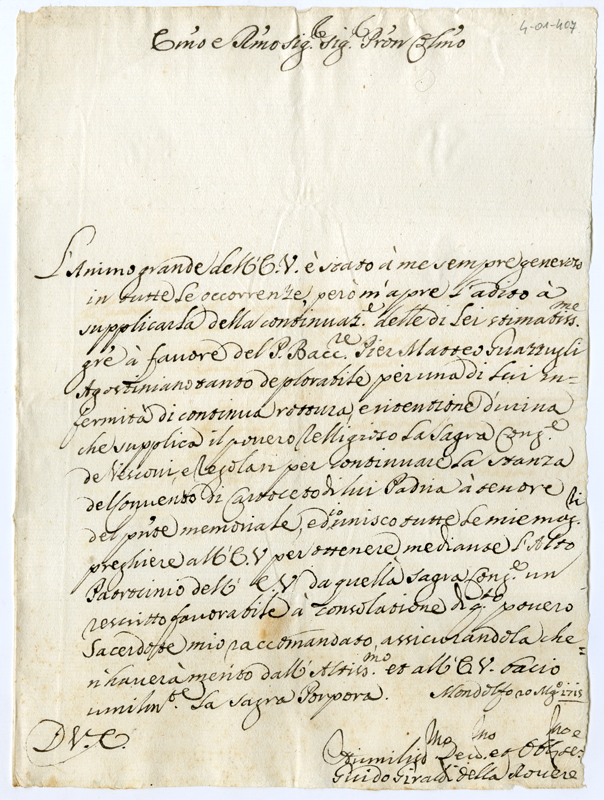 4-01-407
Emo e Rmo Sig.r Sig.r Pron Colmo
L'Animo grande dell'E.V. è stato à me sempre generoso
in tutte le occorrenze, però m'apre l'adito à
supplicarla della continuaz.e delle di Lei stimatiss.me
gr'e à favore del P. Bacc.re Pier Matteo Guazzugli
Agostiniano tanto deplorabile per una di lui in=
fermità di continua rottura, e ritentione d'urina
che supplica il povero Relligioso la Sagra Cong.e
de Vescovi, e Regolari per continuare la stanza
del Convento di Cartoceto di lui Padria à tenore
del pn'te memoriale, ed unisco tutte le mie mag.ri
preghiere all'E.V. per ottenere mediante l'Alto
Patrocinio dell'E.V. da quella Sagra Cong.e un
rescritto favorabile à consolatione di q.to povero
Sacerdote mio raccomandato, assicurandola che=
n'haverà merito dall'Altiss.mo et all'E.V. bacio
umilm.te la Sagra Porpora. Mondolfo 20 Mg.o 1715
D.V.E.
Humiliss.mo Dev.mo et Obb.mo Se.
Guido Giraldi della Rovere